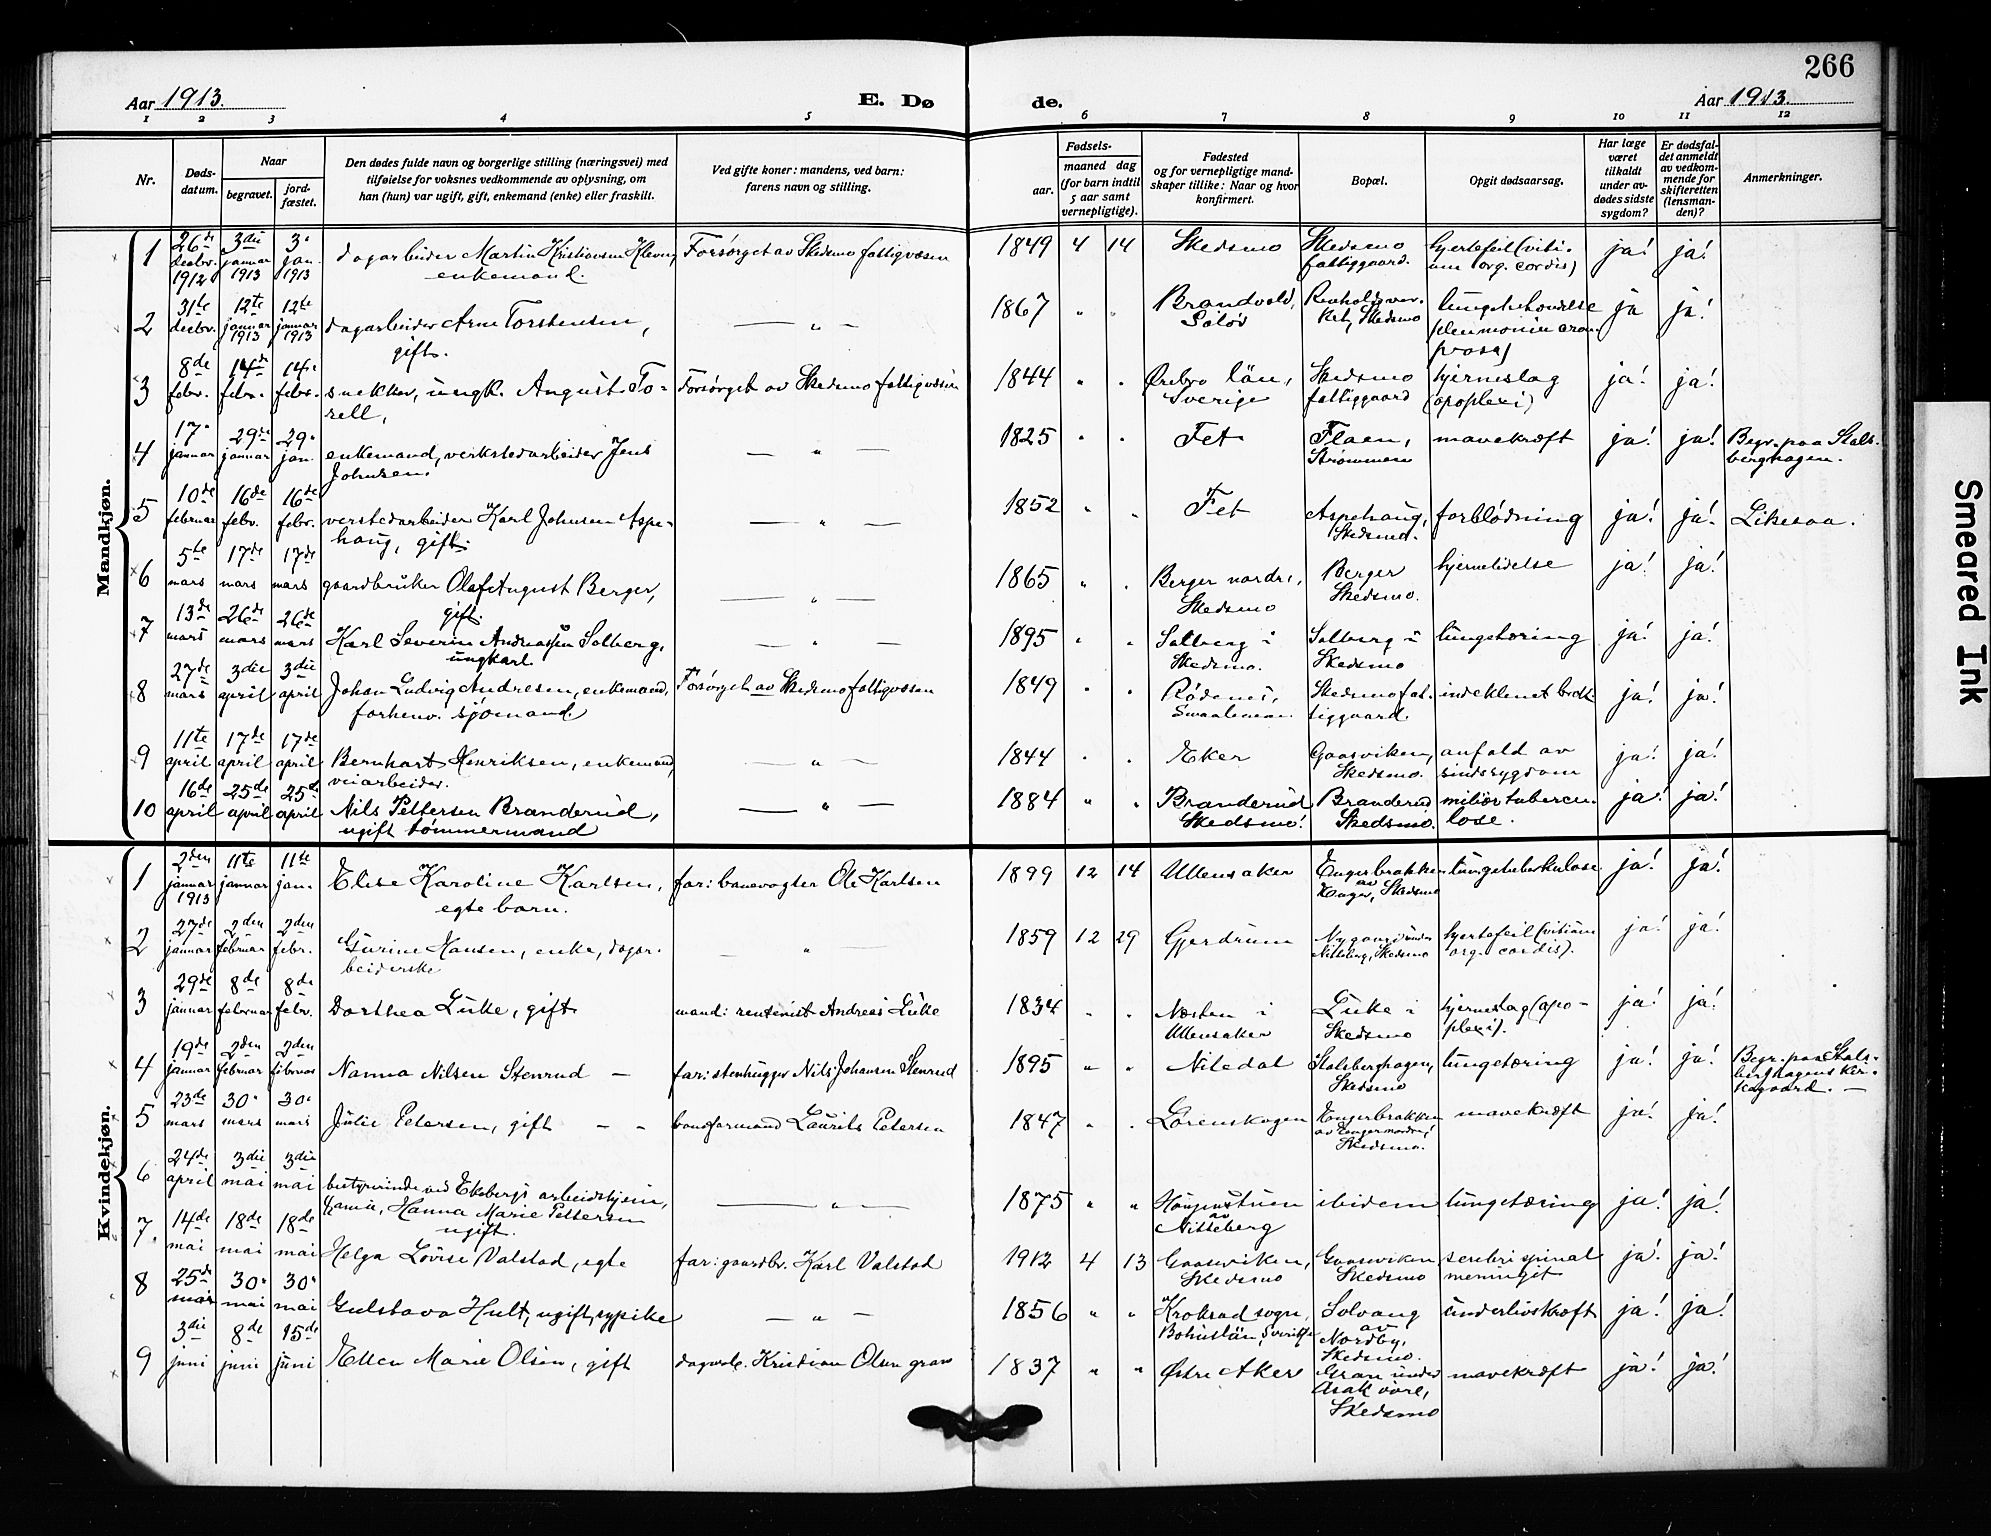 266
Aar 1913.
E. Dø
de.
Aar 1913.
1 2 3 4 5 6 7 8 9 10 11 12
Nr.
Døds-
datum.
Naar
begravet.
jord-
fæstet.
Den dødes fulde navn og borgerlige stilling (næringsvei) med
tilføielse for voksnes vedkommende av oplysning, om
han (hun) var ugift, gift, enkemand (enke) eller fraskilt.
Ved gifte koner: mandens, ved barn:
farens navn og stilling.
Fødsels-
aar.
maaned dag
(for barn indtil
5 aar samt
vernepligtige).
Fødested
og for vernepligtige mand-
skaper tillike: Naar og hvor
konfirmert.
Bopæl.
Opgit dødsaarsag.
Har læge
været
tilkaldt
under av-
dødes sidste
sygdom?
Er dødsfal-
det anmeldt
av vedkom-
mende for
skifteretten
(lensman-
den)?
Anmerkninger.
Mandkjøn.
1 26de decbr. 1912 3die januar 1913 3. jan. 1913 dagarbeider Martin Kristiansen enkemand. Forsørget av Skedsmo fattigvæsen 1849 4 14 Skedsmo Skedsmo fattiggaard. hjertefeil (viti-
um org. cordis) ja! ja!
2 31te decbr. 12te januar 1913 12te januar 1913 dagarbeider Arne Torstensen, gift. — " — 1867 " " Brandvold, Solør Skedsmo ja ja!
3 8de febr. 14de febr. 14de febr. snekker, ungk. August To-
rell, Forsørget av Skedsmo fattigvæsen 1844 " " Ørebro län, Sverige Skedsmo fattiggaard hjerneslag (apoplexi) ja! ja!
4 17. januar 29de januar 29. jan. enkemand, verkstedarbeider Jens Johnsen. — " — 1825 " " Fet Flaen, Strømmen mavekræft ja! ja! Begr. paa Stals-
berghagen.
5 10de februar 16de febr. 16de febr. verstedarbeider Karl Johnsen Aspe-
haug, gift. — " — 1852 " " Fet Aspehaug, Skedsmo. forblødning ja! ja! Likesaa.
6 5te mars 17de mars 17de mars gaardbruker Olaf August Berger, gift. — " — 1865 " " Berger nordre, Skedsmo Berger Skedsmo. hjernelidelse ja! ja!
7 13de mars 26de mars 26de mars Karl Severin Andreassen Solberg, ungkarl — " — 1895 " " Solberg i Skedsmo. Solberg i Skedsmo lungetæring ja! ja!
8 27de mars 3die april 3die april Johan Ludvig Andresen, enkemand, forhenv. sjømand. Forsørget av Skedsmo fattigvæsen 1849 " " Rødenes, Smaalenene. Skedsmo fat-
tiggaard. indeklemt brok ja! ja!
9 11te april 17de april 17de april Bernhart Henriksen, enkemand, veiarbeider. — " — 1844 " " Eker Gaasviken, Skedsmo. anfald av sindssygdom ja! ja!
10 16de april 25de april 25de april Nils Pettersen Branderud, ugift tømmermand — " — 1884 " " Branderud Skedsmo. Branderud Skedsmo. miliærtubercu-
lose. ja! ja!
Kvindekjøn.
1 2den januar 1913 11te januar 11te jan. Elise Karoline Karlsen, egte barn. far: banevogter Ole Karlsen 1899 12 14 Ullensaker Engerbrakken av Enger, Skedsmo lungetuberkulose ja! ja!
2 27de januar 2den februar 2den febr. Gurine Hansen, enke, dagar-
beiderske — " 1859 12 29 Gjerdrum Nygaard under Nitteberg, Skedsmo hjertefeil (vitium org. cordis). ja! ja!
3 29de januar 8de februar 8de febr. Dorthea Luke, gift mand: rentenist Andreas Luke 1834 " " Næsten i Ullensaker Luke i Skedsmo hjerneslag (apo-
plexi). ja! ja!
4 19de januar 2den februar 2den februar Nanna Nilsen Stenrud — far: stenhugger Nils Johansen Stenrud 1895 " " Nitedal Stalsberghagen, Skedsmo lungetæring ja! ja! Begr. paa Stals-
berghagens kir-
kegaard. —
5 23de mars 30. mars 30. mars Julie Petersen, gift — — baneformand Laurits Petersen 1847 " " Lørenskogen Engerbrakken av Enger nordre, Skedsmo. mavekræft ja! ja!
6 24de april 3die mai 3die mai bestyrerinde ved Eksbergs arbeidshjem, Hanna Marie Pettersen ugift. — " — 1875 " " av Nitteberg ibidem lungetæring ja! ja!
7. 14de mai 18de mai 18de mai Helga Lovise Valstad, egte far: gaardbr. Karl Valstad 1912 4 13 Gaasviken, Skedsmo Gaasviken Skedsmo serebrispinal meninget ja! ja!
8 25de mai 30. mai 30. mai Gustava Hult, ugift, sypike — " — 1856 " " Krokstad sogn, Bohuslän, Sverike Solvang av Nordby, Skedsmo. underlivskræft ja! ja!
9 3die juni 8de juni 15de juni Ellen Marie Olsen, gift dagarb. Kristian Olsen gran 1837 " " Østre Aker Gran under Asak øvre, Skedsmo mavekræft ja! ja!
Smeared Ink